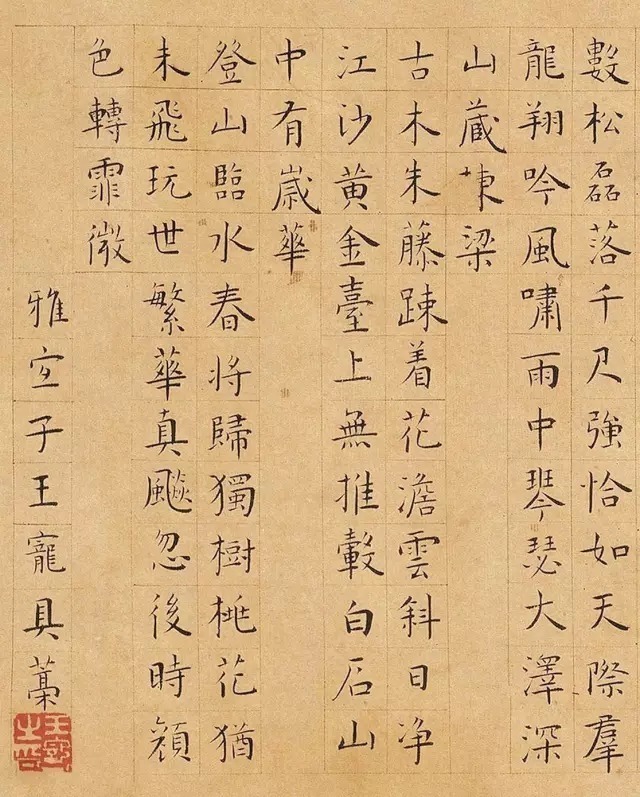 數松磊落千尺強恰如天際羣
龍翔吟風嘯雨中琴瑟大澤深
山蔵棟梁
古木朱藤踈着花澹雲斜日净
江沙黄金臺上無推轂白石山
中有歳華
登山臨水春將歸獨樹桃花猶
未飛玩世繁華真飇忽後時顔
色轉霏微
雅宜子王寵具藁
王寵之印